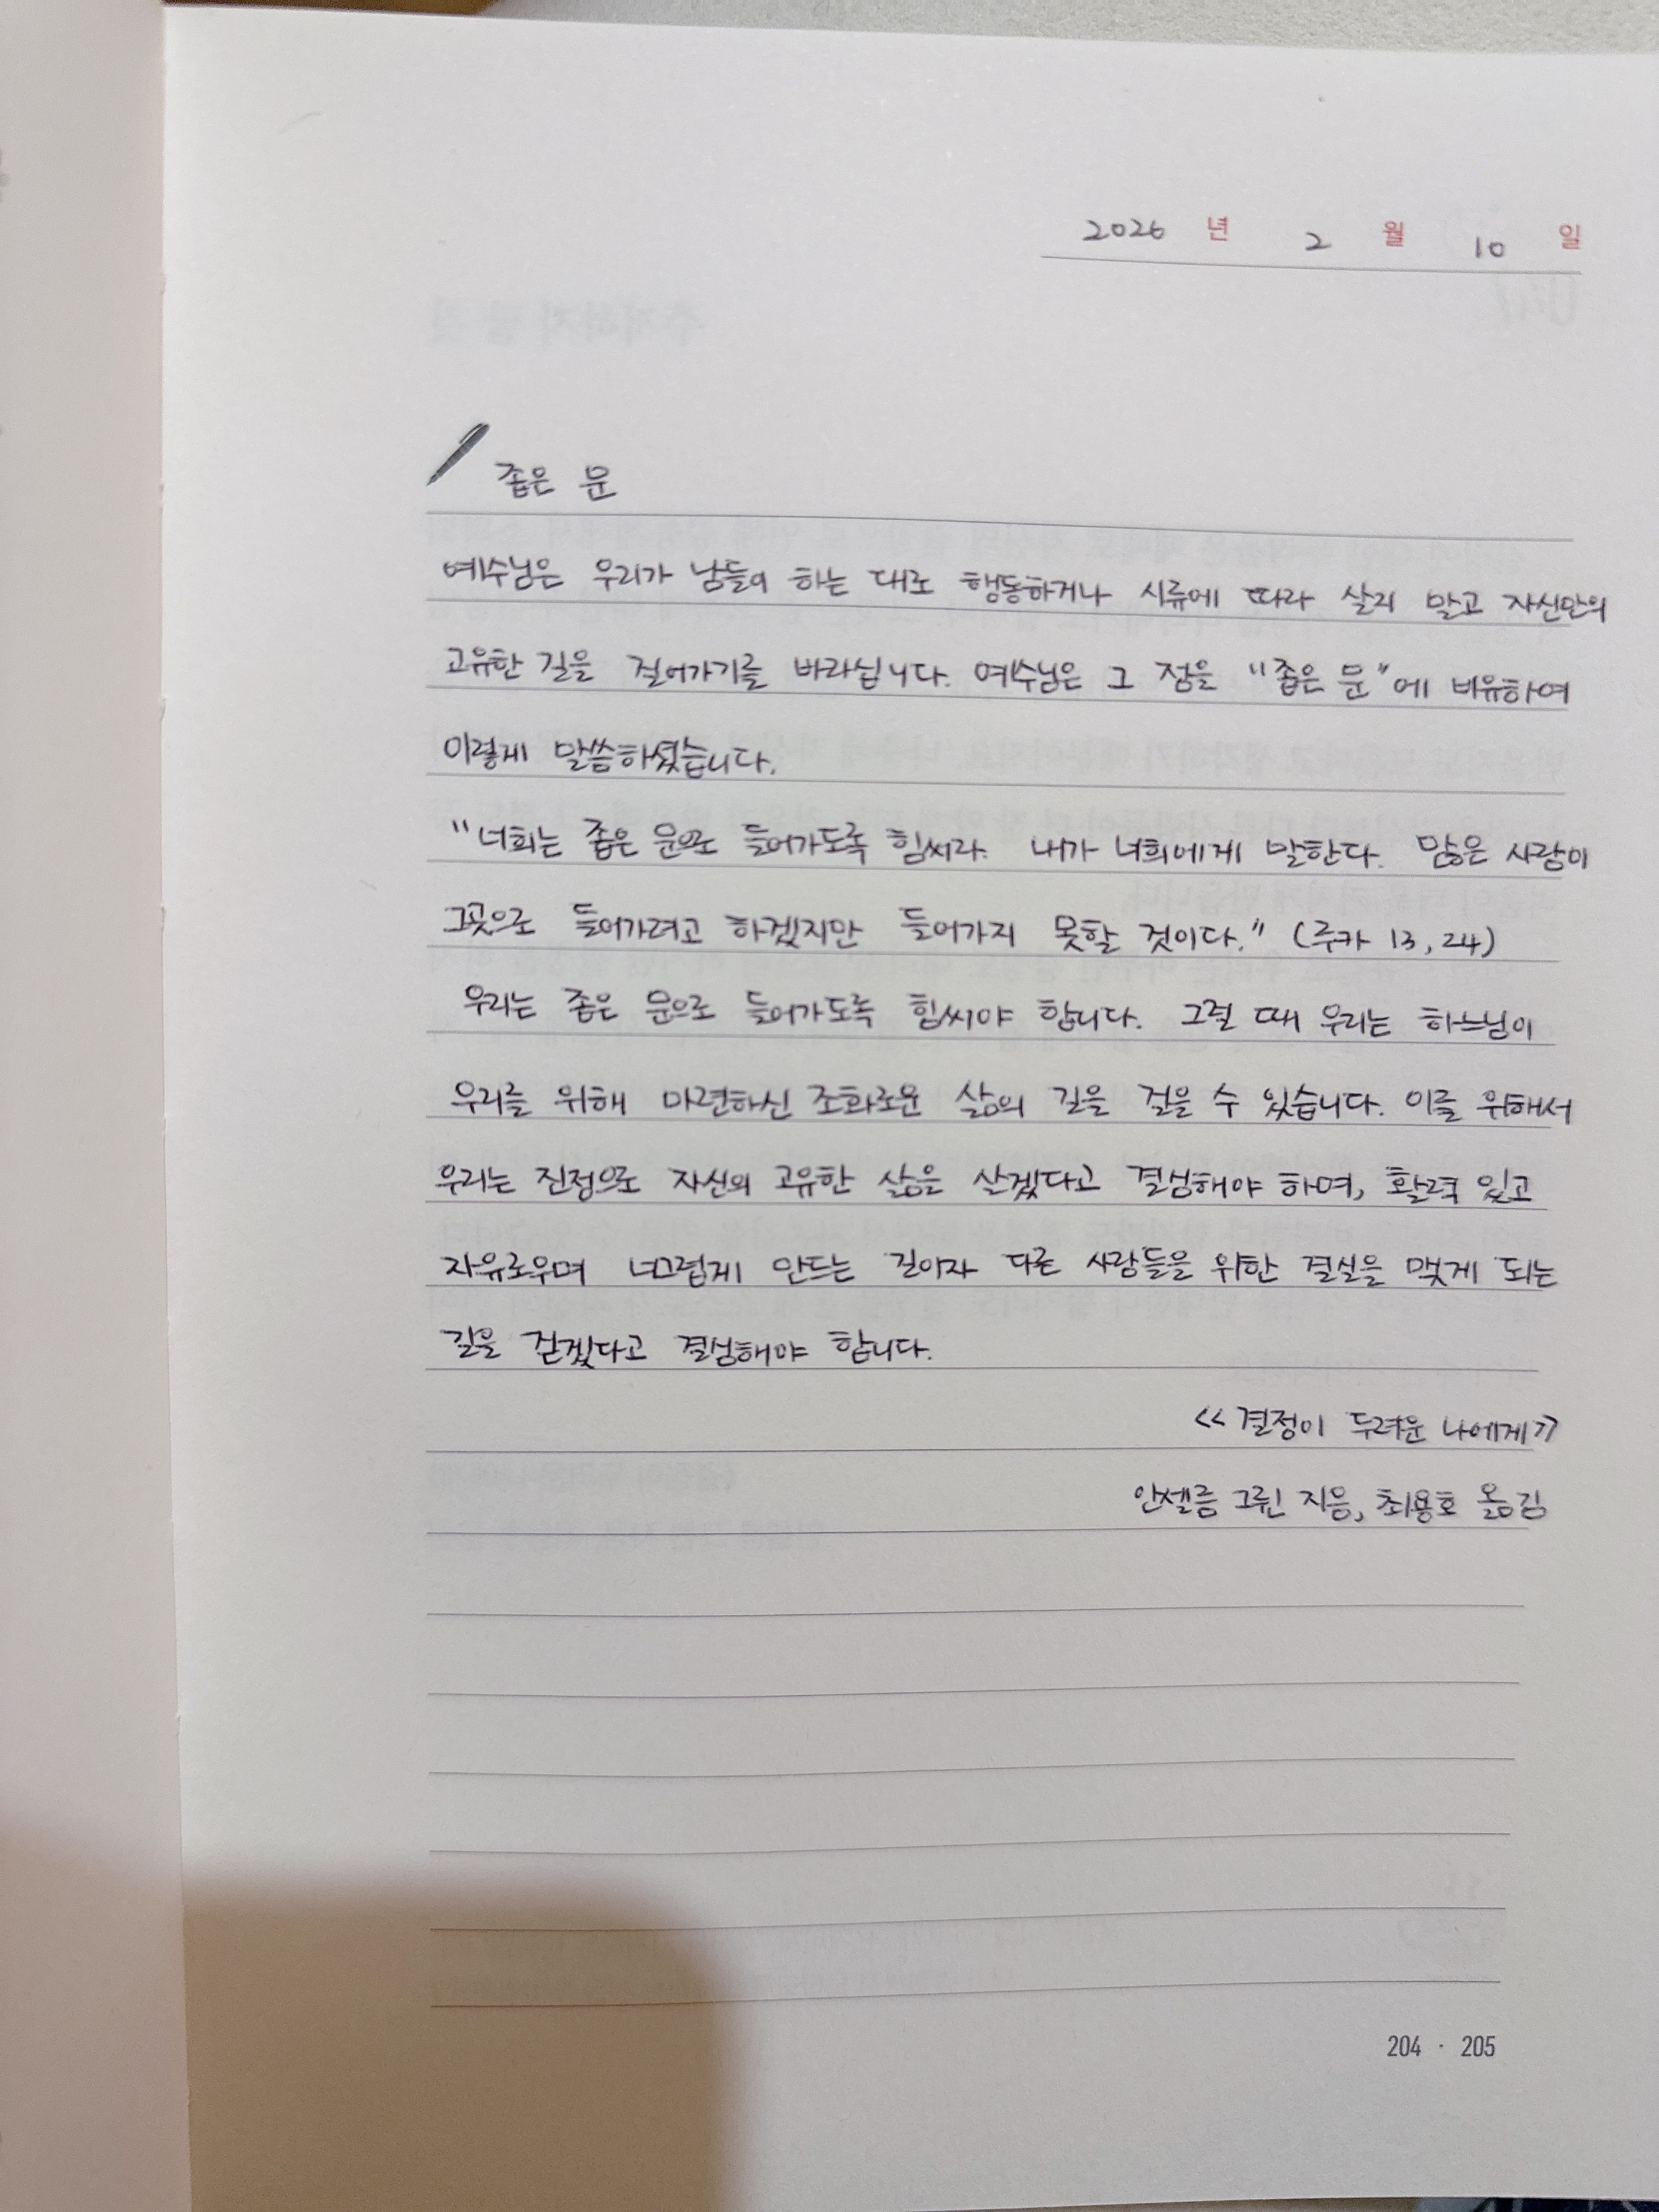 2026 년 2 월 10 일
좁은 문
예수님은 우리가 남들이 하는 대로 행동하거나 시류에 따라 살지 말고 자신만의
고유한 길을 걸어가기를 바라십니다. 예수님은 그 점을 "좁은 문"에 비유하여
이렇게 말씀하셨습니다.
"너희는 좁은 문으로 들어가도록 힘써라. 내가 너희에게 말한다. 많은 사람이
그곳으로 들어가려고 하겠지만 들어가지 못할 것이다." (루카 13, 24)
우리는 좁은 문으로 들어가도록 힘써야 합니다. 그럴 때 우리는 하느님이
우리를 위해 마련하신 조화로운 삶의 길을 걸을 수 있습니다. 이를 위해서
우리는 진정으로 자신의 고유한 삶을 살겠다고 결심해야 하며, 활력 있고
자유로우며 너그럽게 만드는 길이자 다른 사람들을 위한 결실을 맺게 되는
길을 걷겠다고 결심해야 합니다.
<<결정이 두려운 나에게>>
안셀름 그륀 지음, 최용호 옮김
204 · 205